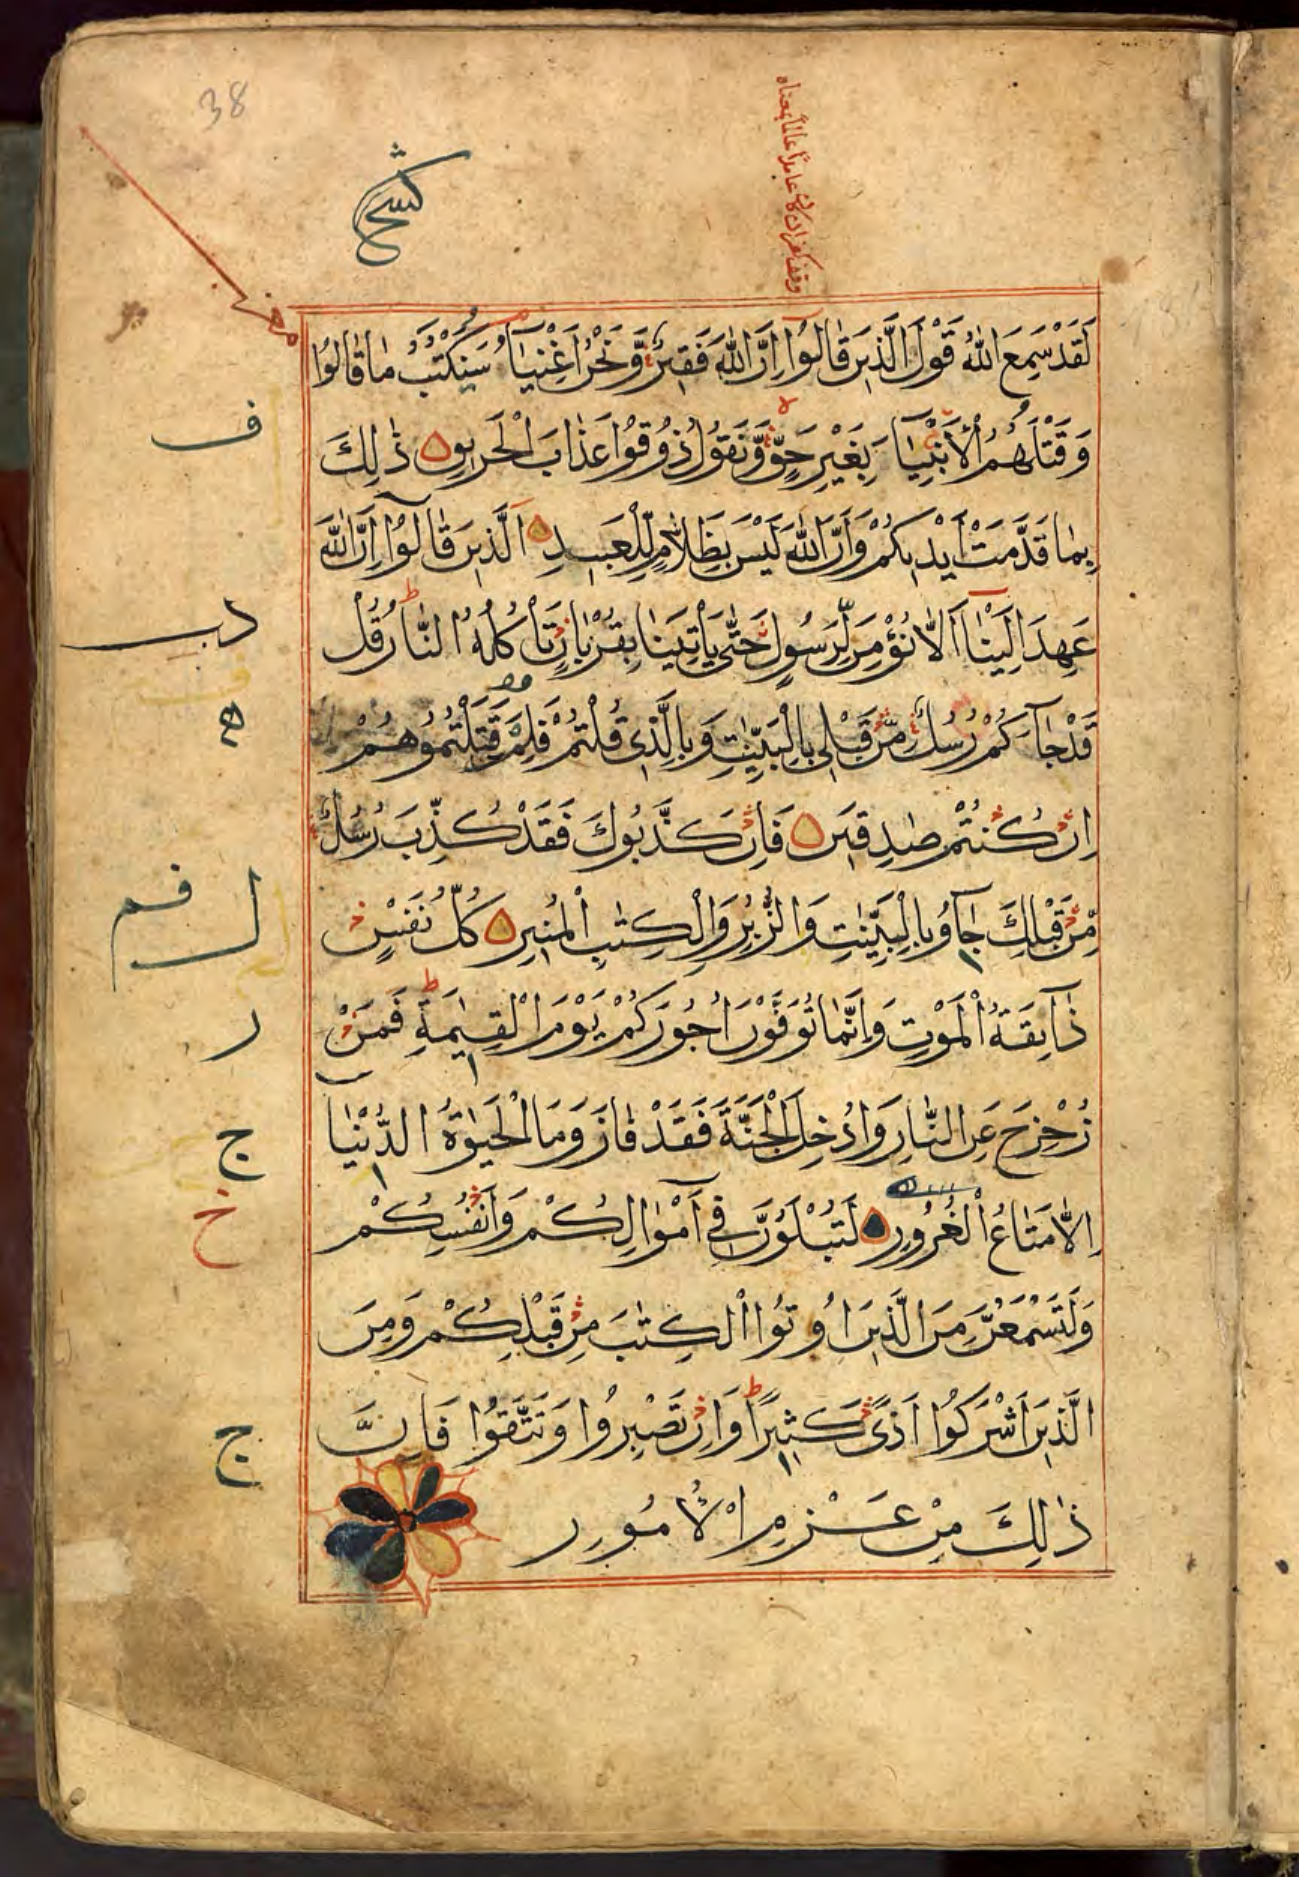 38
لَقَدْ سَمِعَ اللّٰهُ قَوْلَ الَّذِينَ قَالُوا إِنَّ اللّٰهَ فَقِيرٌ وَّنَحْنُ اَغْنِيَآءُ سَنَكْتُبُ مَا قَالُوا
وَقَتْلَهُمُ الْأَنْبِيَآءَ بِغَيْرِ حَقٍّ وَّنَقُولُ ذُوقُوا عَذَابَ الْحَرِيقِ ذٰلِكَ
بِمَا قَدَّمَتْ أَيْدِيكُمْ وَأَنَّ اللّٰهَ لَيْسَ بِظَلَّامٍ لِّلْعَبِيدِ اَلَّذِينَ قَالُوٓا إِنَّ اللّٰهَ
عَهِدَ اِلَيْنَآ اَلَّا نُؤْمِنَ لِرَسُولٍ حَتّٰى يَأْتِيَنَا بِقُرْبَانٍ تَأْكُلُهُ النَّارُ قُلْ
قَدْ جَآءَكُمْ رُسُلٌ مِّنْ قَبْلِى بِالْبَيِّنٰتِ وَبِالَّذِى قُلْتُمْ فَلِمَ قَتَلْتُمُوهُمْ
اِنْ كُنْتُمْ صٰدِقِينَ فَاِنْ كَذَّبُوكَ فَقَدْ كُذِّبَ رُسُلٌ
مِّنْ قَبْلِكَ جَآءُو بِالْبَيِّنٰتِ وَالزُّبُرِ وَالْكِتٰبِ الْمُنِيرِ كُلُّ نَفْسٍ
ذَآئِقَةُ الْمَوْتِ وَاِنَّمَا تُوَفَّوْنَ اُجُورَكُمْ يَوْمَ الْقِيٰمَةِ فَمَنْ
زُحْزِحَ عَنِ النَّارِ وَاُدْخِلَ الْجَنَّةَ فَقَدْ فَازَ وَمَا الْحَيٰوةُ الدُّنْيَآ
اِلَّا مَتَاعُ الْغُرُورِ لَتُبْلَوُنَّ فِىٓ اَمْوَالِكُمْ وَاَنْفُسِكُمْ
وَلَتَسْمَعُنَّ مِنَ الَّذِينَ اُوتُوا الْكِتٰبَ مِنْ قَبْلِكُمْ وَمِنَ
الَّذِينَ اَشْرَكُوٓا اَذًى كَثِيرًا وَاِنْ تَصْبِرُوا وَتَتَّقُوا فَاِنَّ
ذٰلِكَ مِنْ عَزْمِ الْاُمُورِ
ف
ر
ج
خ
ج